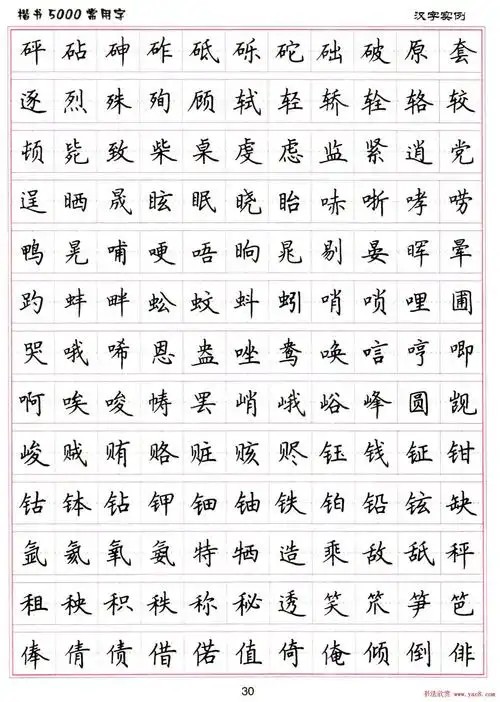 楷书5000常用字 汉字实例
砰 砧 砷 砟 砥 砾 砣 础 破 原 套
逐 烈 殊 殉 顾 轼 轻 轿 辁 辂 较
顿 毙 致 柴 桌 虔 虑 监 紧 逍 党
逞 晒 晟 眩 眠 晓 眙 哧 哳 哮 唠
鸭 晃 哺 哽 唔 晌 晁 剔 晏 晖 晕
趵 蚌 畔 蚣 蚊 蚪 蚓 哨 唢 哩 圃
哭 哦 唏 恩 盎 唑 鸯 唤 唁 哼 唧
啊 唉 唆 帱 罢 峭 峨 峪 峰 圆 觊
峻 贼 贿 赂 赃 赅 赆 钰 钱 钲 钳
钴 钵 钻 钾 钿 铀 铁 铂 铅 铉 缺
氩 氦 氧 氨 特 牺 造 乘 敌 舐 秤
租 秧 积 秩 称 秘 透 笑 笊 笋 笆
俸 倩 债 借 偌 值 倚 俺 倾 倒 俳
30
书法欣赏 www.yac8.com